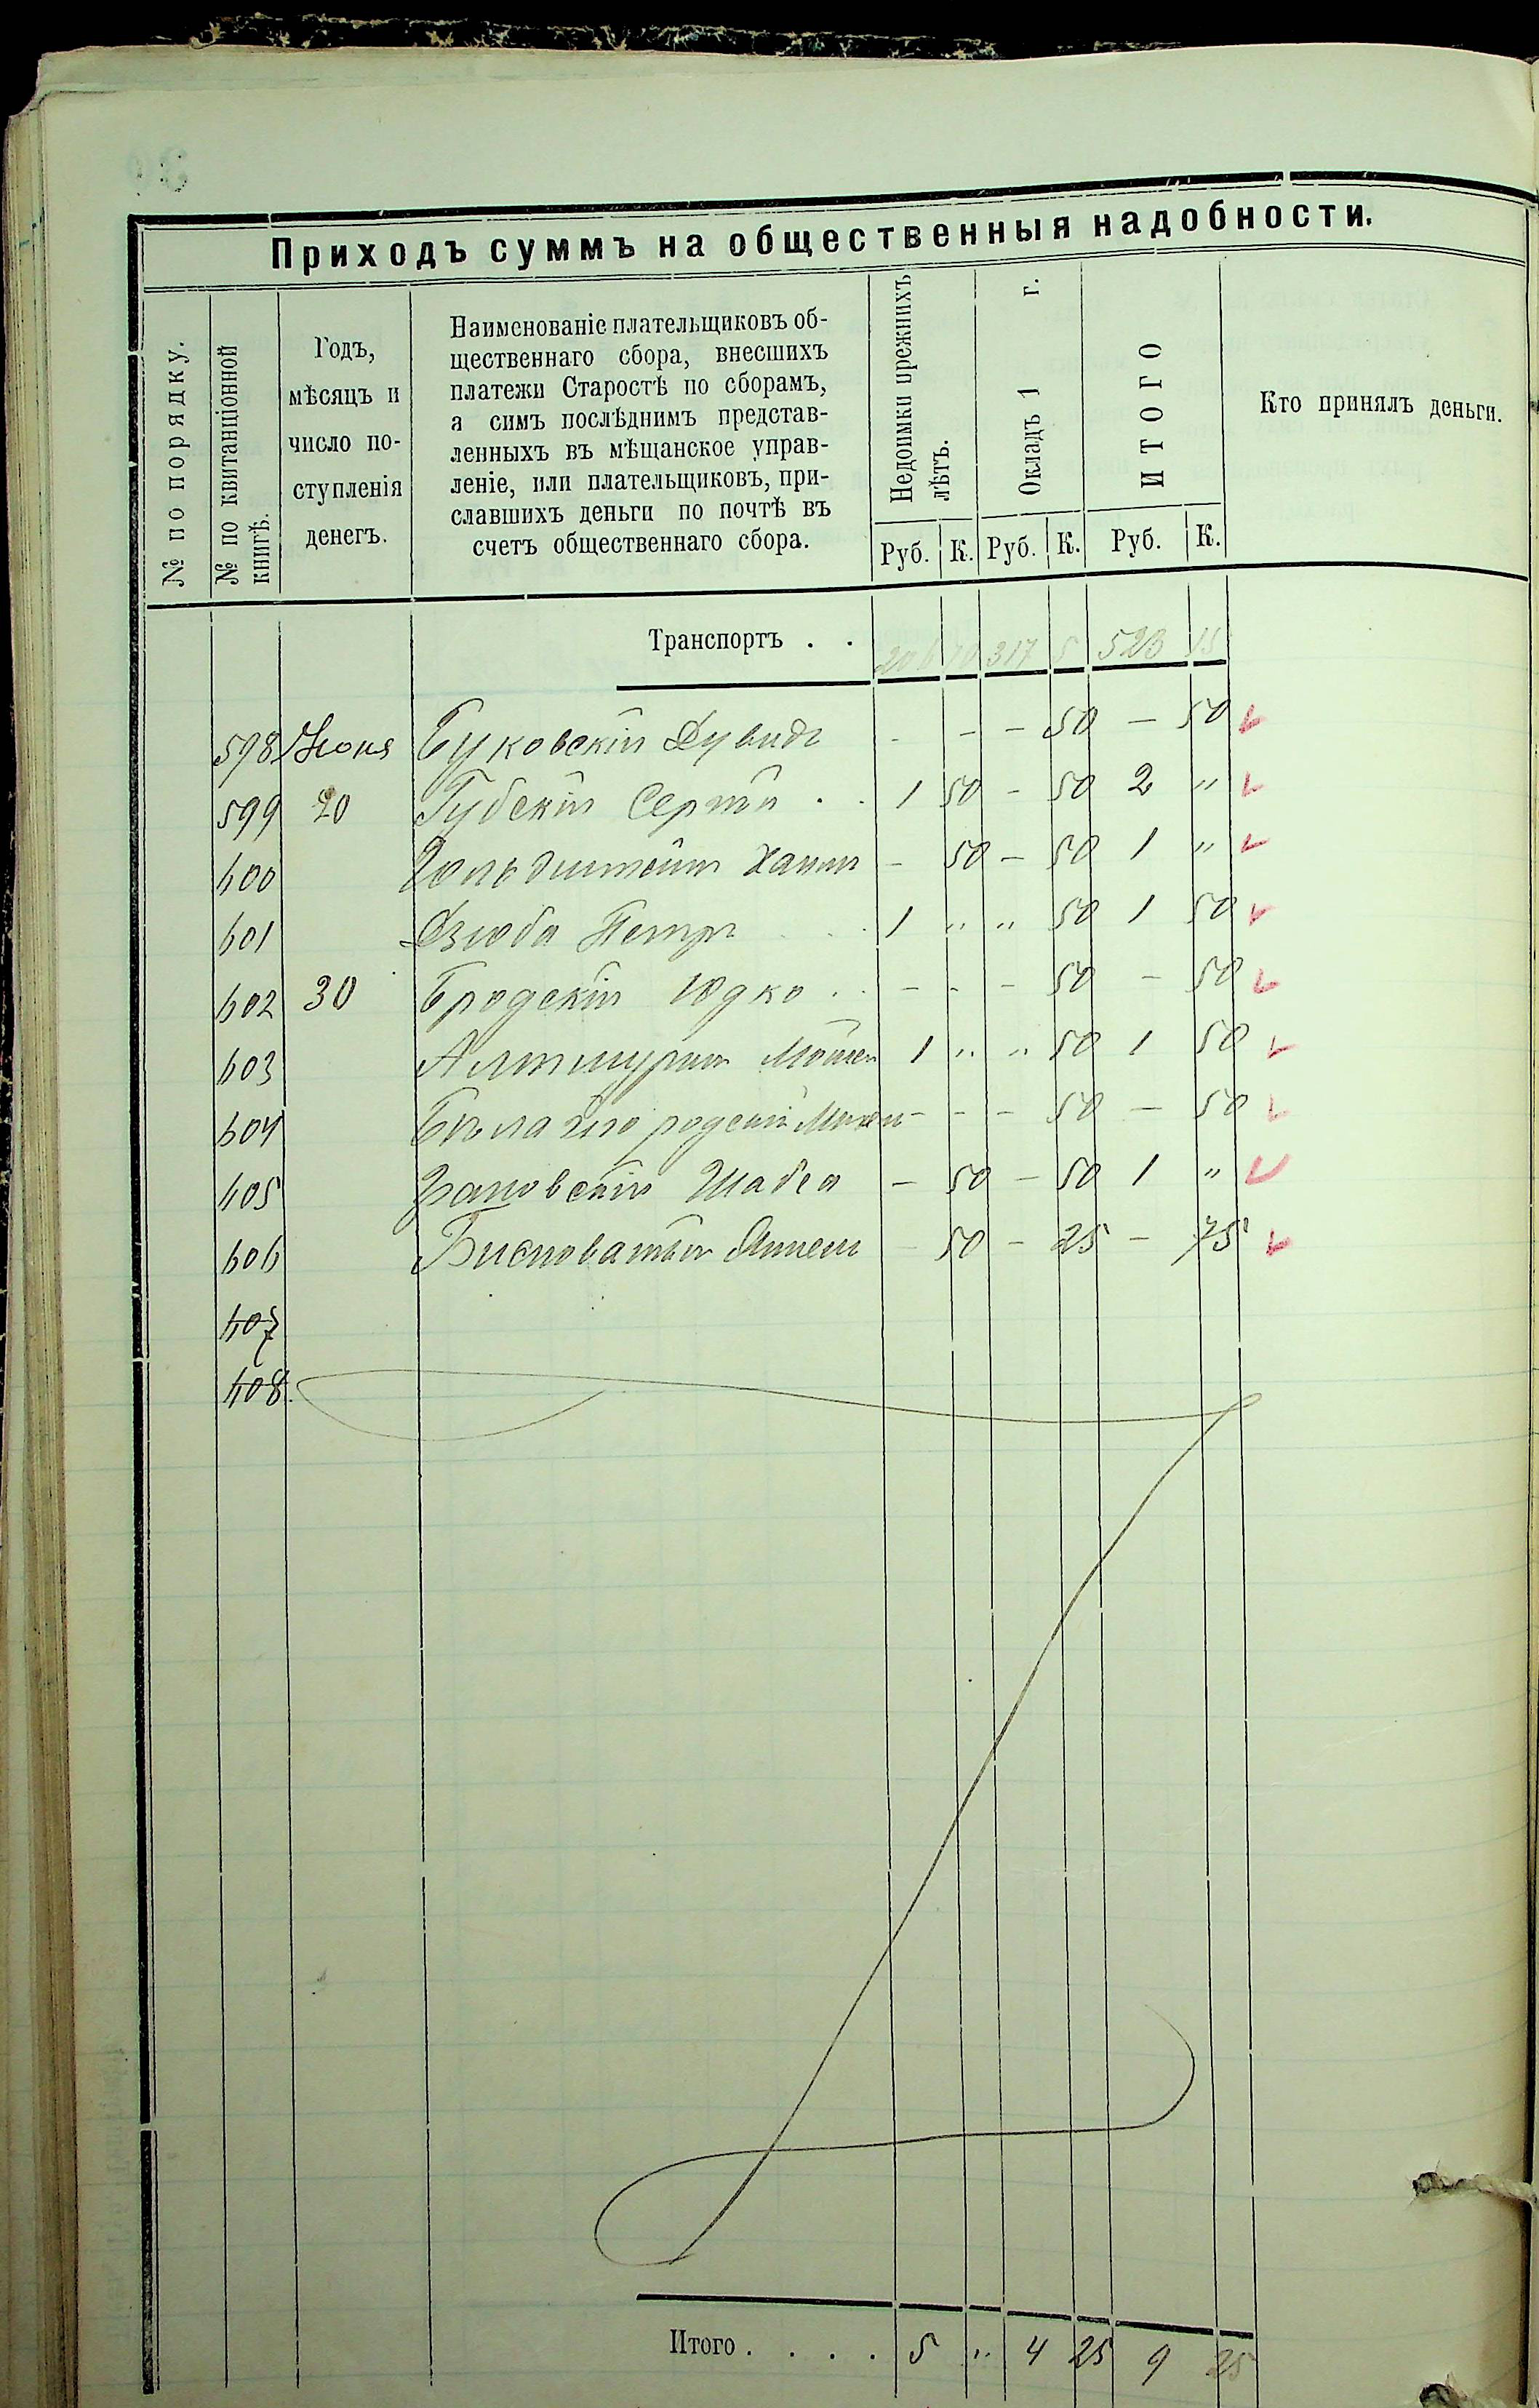 Приходъ суммъ на общественныя надобности.
№ по порядку.
№ по квитанціонной
книгѣ.
Годъ,
мѣсяцъ и
число по-
ступленія
денегъ.
Наименованіе плательщиковъ об-
щественнаго сбора, внесшихъ
платежи Старостѣ по сборамъ,
а симъ послѣднимъ представ-
ленныхъ въ мѣщанское управ-
леніе, или плательщиковъ, при-
славшихъ деньги по почтѣ въ
счетъ общественнаго сбора.
Недоимки прежнихъ
лѣтъ.
Окладъ 1 г.
ИТОГО
Кто принялъ деньги.
Руб. К. Руб. К. Руб. К.
Транспортъ . . 206 10 317 5 523 15
598 Июня Буковскій Дувидъ - - - 50 — 50
599 20 Губскій Сергѣй . . 1 50 - 50 2 "
600 Гольдштейнъ Хаимъ - 50 - 50 1 "
601 Дзюба Петръ . . . 1 " " 50 1 50
602 30 Бродскій Юдко . . - - - 50 — 50
603 Альтшулеръ 1 " " 50 1 50
604 - - - 50 — 50
605 — 50 — 50 1 "
606 Бисноватый - 50 - 25 — 75
607
608.
Итого . . . . 5 " 4 25 9 25